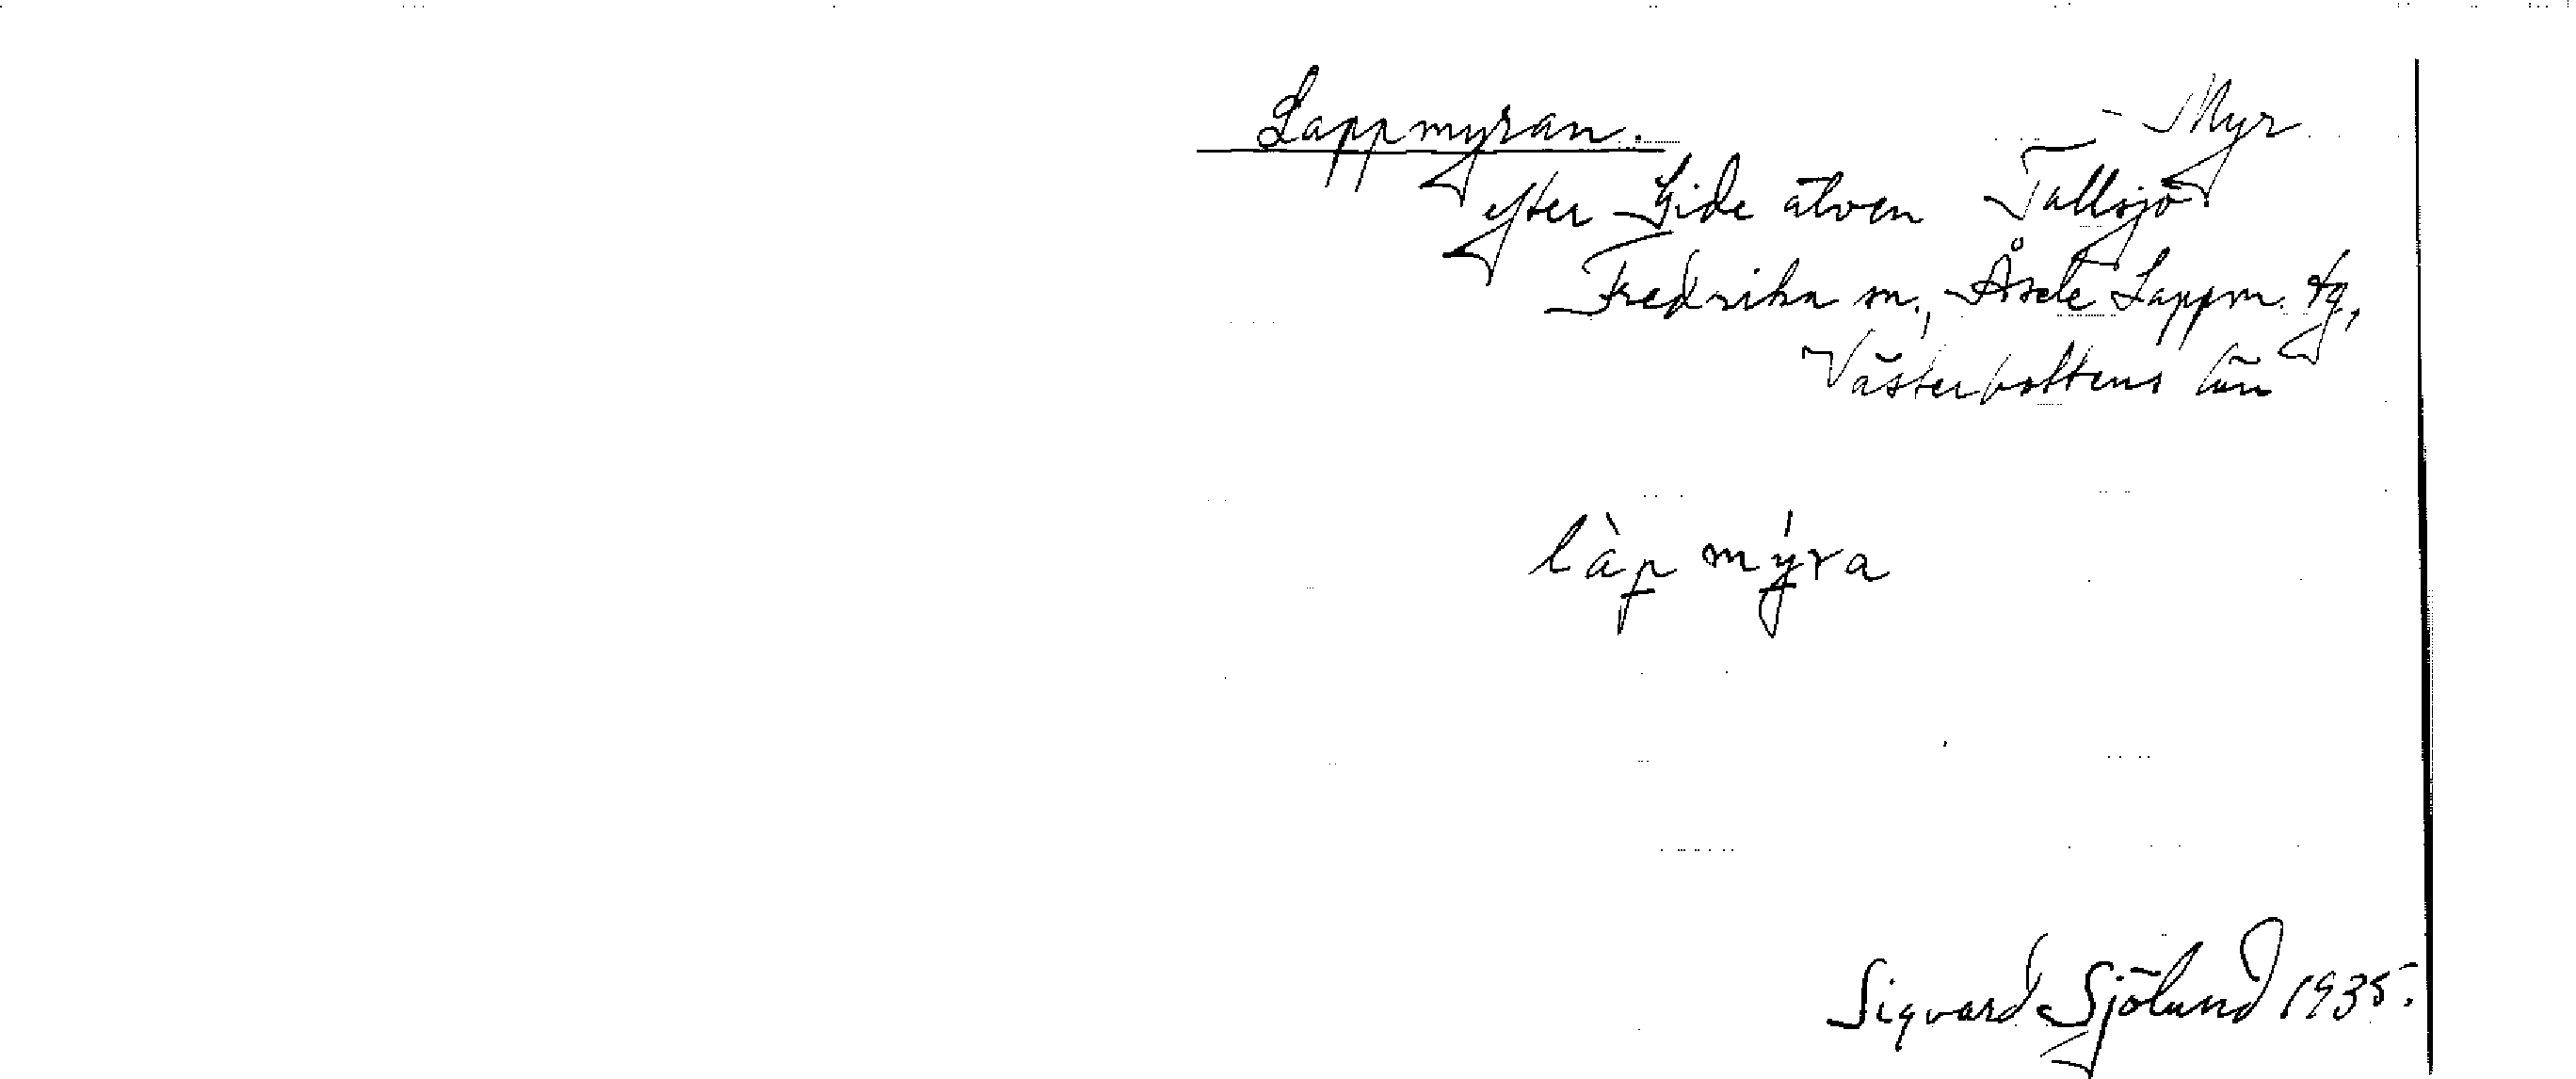 Lappmyran. - Myr
efter Gide älven Tallsjö
Fredrika sn., Åsele Lappm. tg,
Västerbottens län
làp mýra
Sigvard Sjölund 1935.